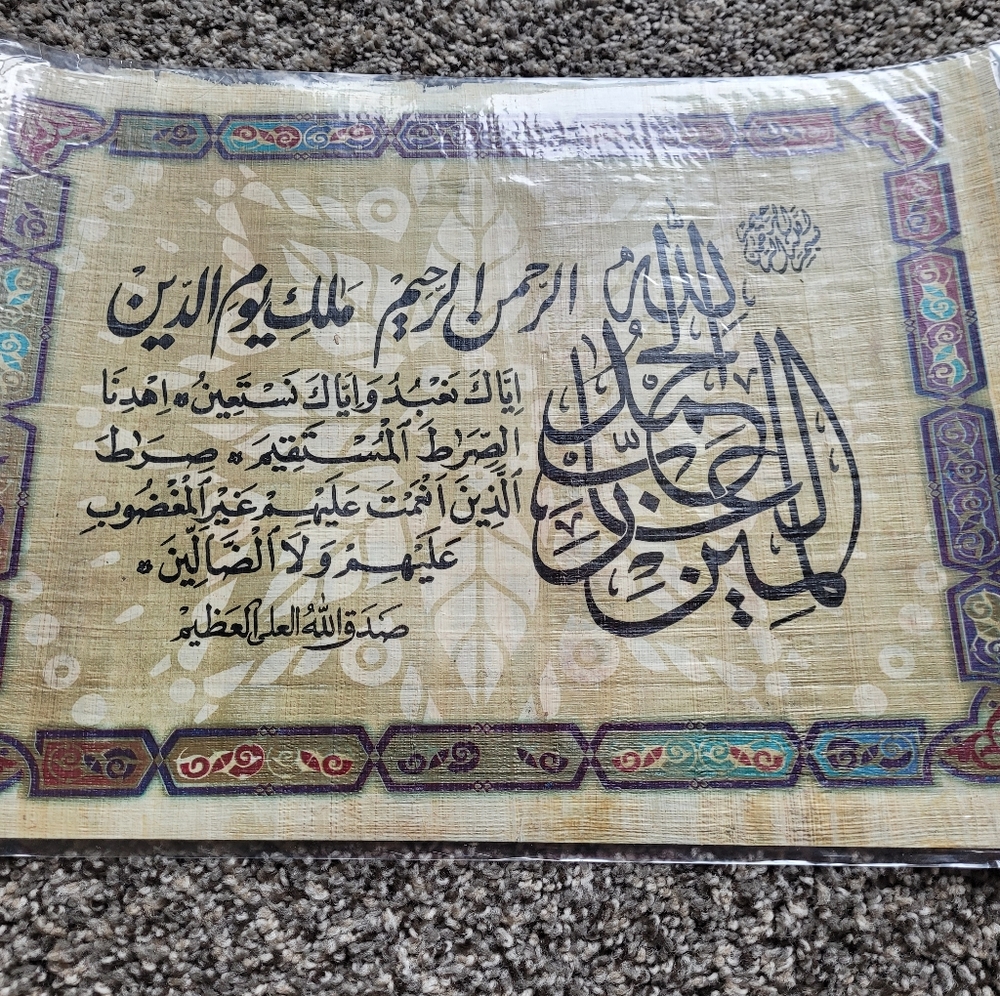 بسم الله الرحمن الرحيم
الحمد لله رب العالمين
الرحمن الرحيم ملك يوم الدين
اِيَّاكَ نَعْبُدُ وَاِيَّاكَ نَسْتَعِينُ * اِهْدِنَا
الصِّرَٰطَ ٱلْمُسْتَقِيمَ * صِرَٰطَ
ٱلَّذِينَ اَنْعَمْتَ عَلَيْهِمْ غَيْرِ ٱلْمَغْضُوبِ
عَلَيْهِمْ وَلَا ٱلْضَالِّينَ *
صَدَقَ اللهُ العلي العَظِيمْ